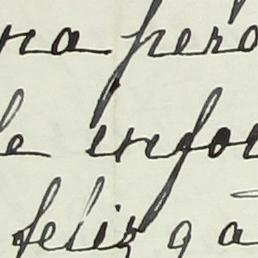 na pero
le infor
feliz q a